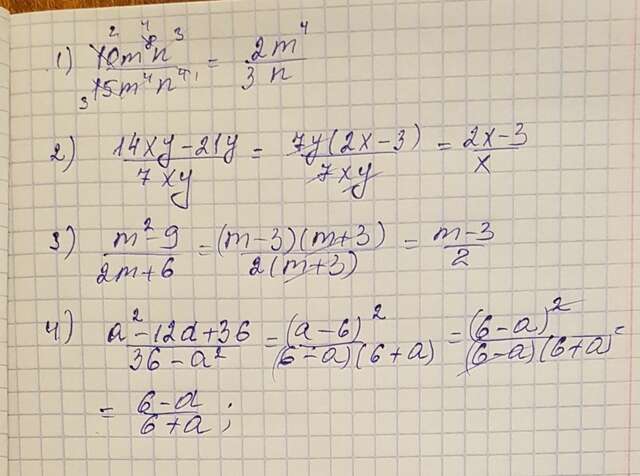 1) 10m⁸n³/15m⁴n⁴ = 2m⁴/3n
2) 14xy-21y/7xy = 7y(2x-3)/7xy = 2x-3/x
3) m²-9/2m+6 = (m-3)(m+3)/2(m+3) = m-3/2
4) a²-12a+36/36-a² = (a-6)²/(6-a)(6+a) = (6-a)²/(6-a)(6+a) =
= 6-a/6+a;